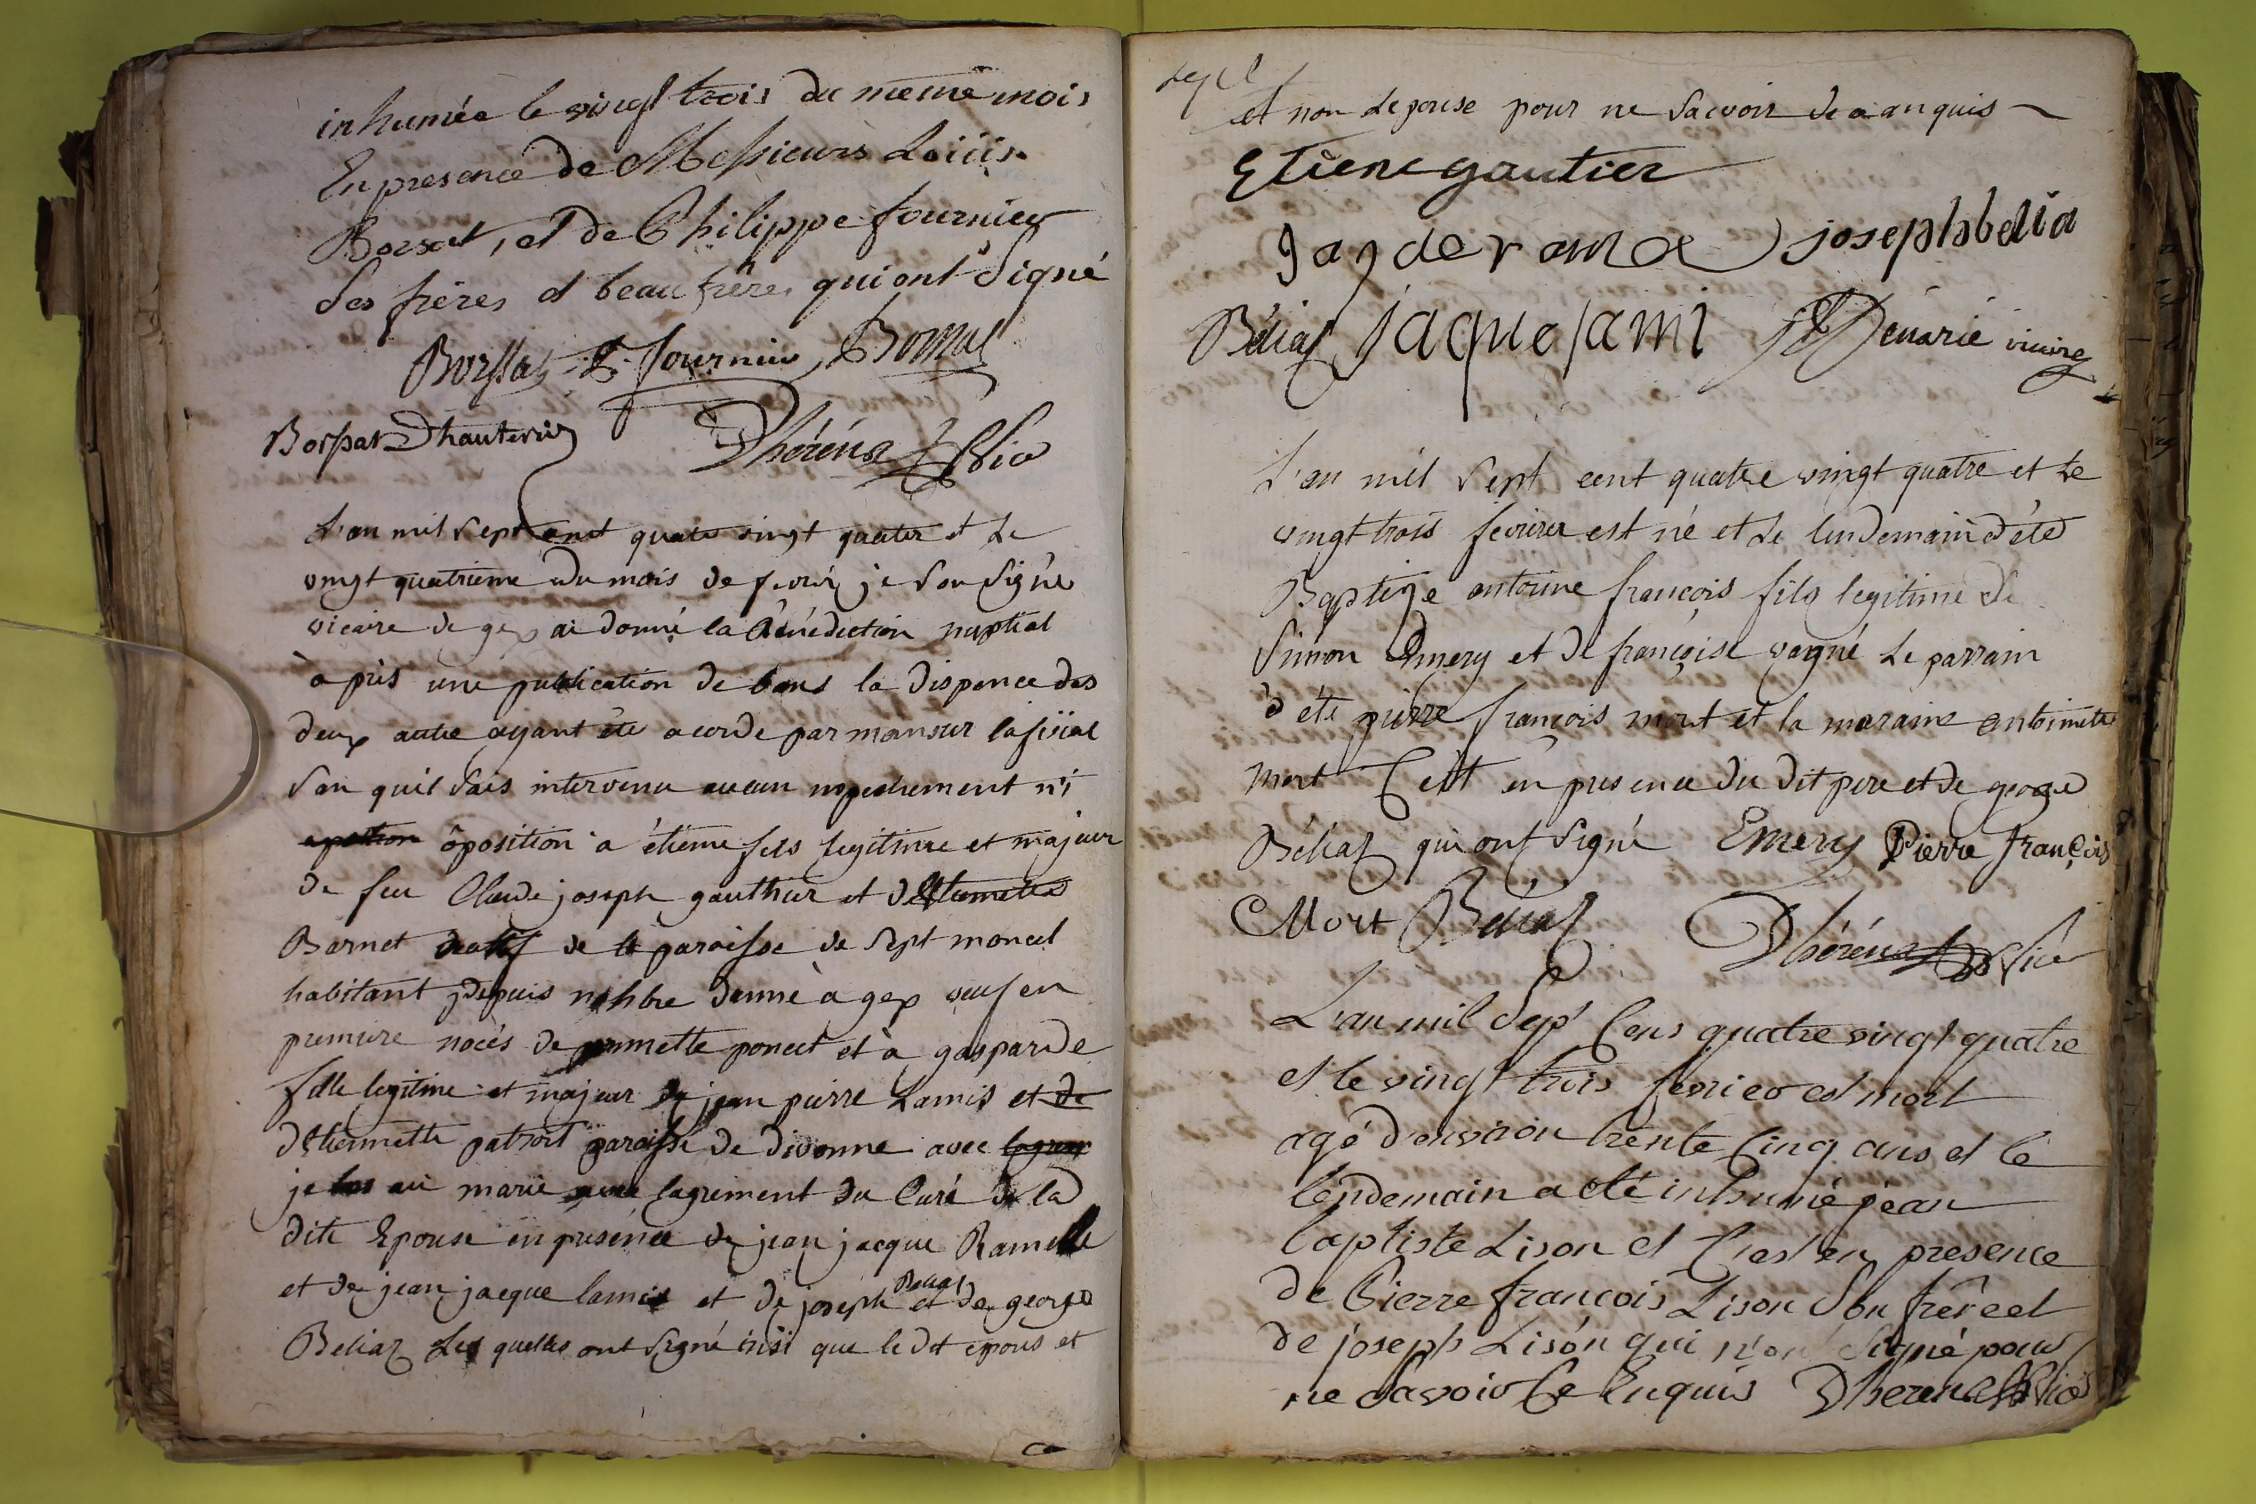 inhumée le vingt trois du meme mois
En presence de Messieurs Loüis
Borsat, et de Philippe fournier
Ses frères et beau frère qui ont Signé
Borssat P. fournier Borssat
Borssat Dhauterive Dhéréna Vic
L'an mil sept cent quatre vingt quatre et le
vingt quatrieme du mois de fevrier je sou Signé
vicaire de gex ai donné la Bénédiction nuptial
àpris une publication de bans la dispence des
deux autre ayant été acordé par monsieur lofisial
San quil Sois intervenu aucun inpechement n'i
ôposition à étienne fils legitime et majeur
de feu Claude joseph gauthier et d'Etiennette
Barnet de la paroisse de Sept moncel
habitant depuis nonbre danné à gex veuf en
premiere noces de poncet et à gasparde
fille legitime et majeur de jean pierre Lamis et de
dEtiennette patrort paroisse de divonne avec
je ai marié lagrement du Curé de la
dite Epouse en présence de jean jacque Ramelle
et de jean jacque lamis et de joseph Beliaz et de george
Beliaz Les quelles ont Signé insi que le dit epous et
et non Lepouse pour ne Sacvoir de a anquis
Etiene gautier
josephbelia
Béliaz jaque lami Dénarié vicaire
L'an mil Sept cent quatre vingt quatre et le
vingt trois fevrier est né et le lendemain à été
Baptize antoine françois fils legitime de
Simon Emery et de françoise vagné Le parrain
à été pierre françois mort et la maraine antoinette
mort C'est en presence du dit pere et de george
Béliaz qui ont Signé Emery Pierre françois
Mort Beliaz Dhéréna Vic
L'an mil Sept Cens quatre vingt quatre
et le vingt trois fevrier est mort
agé d'environ trente Cinq ans et le
lendemain a été inhumé jean
baptiste Lison et C'est en presence
de Pierre françois Lison Son frère et
de joseph Lison qui n'on Signé pour
ne Savoir Ce Enquis Dhéréna Vic